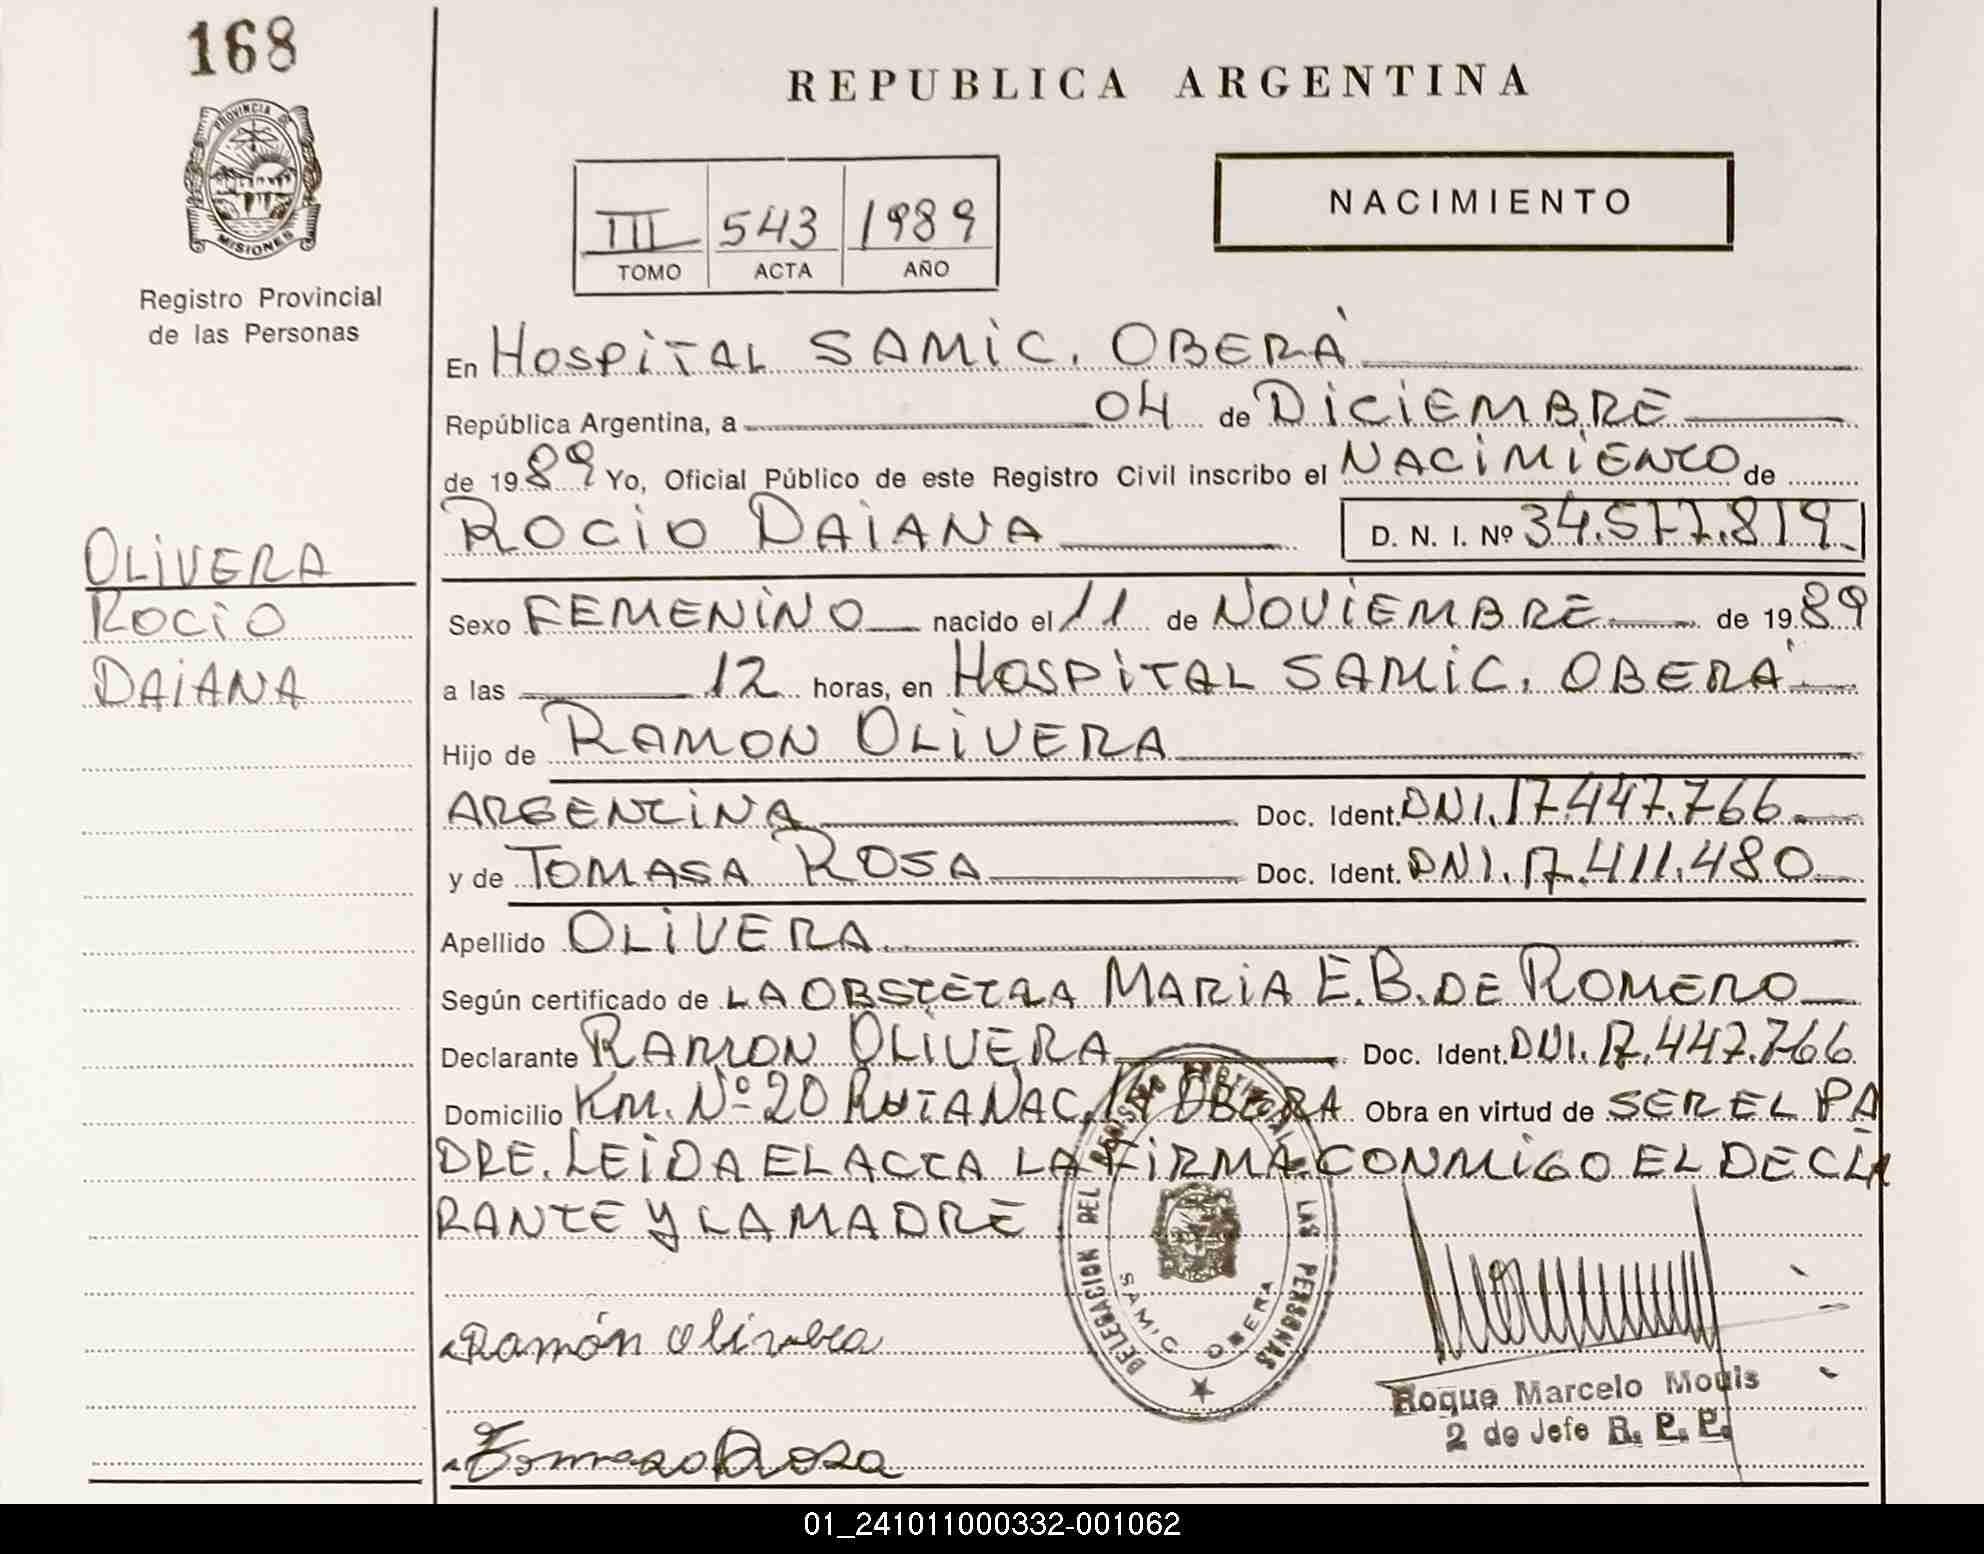 168
PROVINCIA DE
MISIONES
Registro Provincial
de las Personas
OLIVERA
ROCIO
DAIANA
REPUBLICA ARGENTINA
III 543 1989
TOMO ACTA AÑO
NACIMIENTO
En HOSPITAL SAMIC. OBERÁ
República Argentina, a 04 de DICIEMBRE
de 1989 Yo, Oficial Público de este Registro Civil inscribo el NACIMIENTO de
ROCIO DAIANA D. N. I. Nº 34.577.819
Sexo FEMENINO nacido el 11 de NOVIEMBRE de 1989
a las 12 horas, en HOSPITAL SAMIC. OBERÁ
Hijo de RAMON OLIVERA
ARGENTINA Doc. Ident. DNI. 17.447.766
y de TOMASA ROSA Doc. Ident. DNI. 17.411.480
Apellido OLIVERA
Según certificado de LA OBSTETRA MARIA E. B. DE ROMERO
Declarante RAMON OLIVERA Doc. Ident. DNI. 17.447.766
Domicilio KM. Nº 20 RUTA NAC. OBERA Obra en virtud de SER EL PA
DRE. LEIDA EL ACTA LA FIRMA CONMIGO EL DECLA
RANTE Y LA MADRE
DELEGACION DEL REGISTRO PROVINCIAL DE LAS PERSONAS
SAMIC OBERA
Ramón Olivera
Roque Marcelo Mouis
2 do Jefe R. P. P.
Tomasa Rosa
01_241011000332-001062